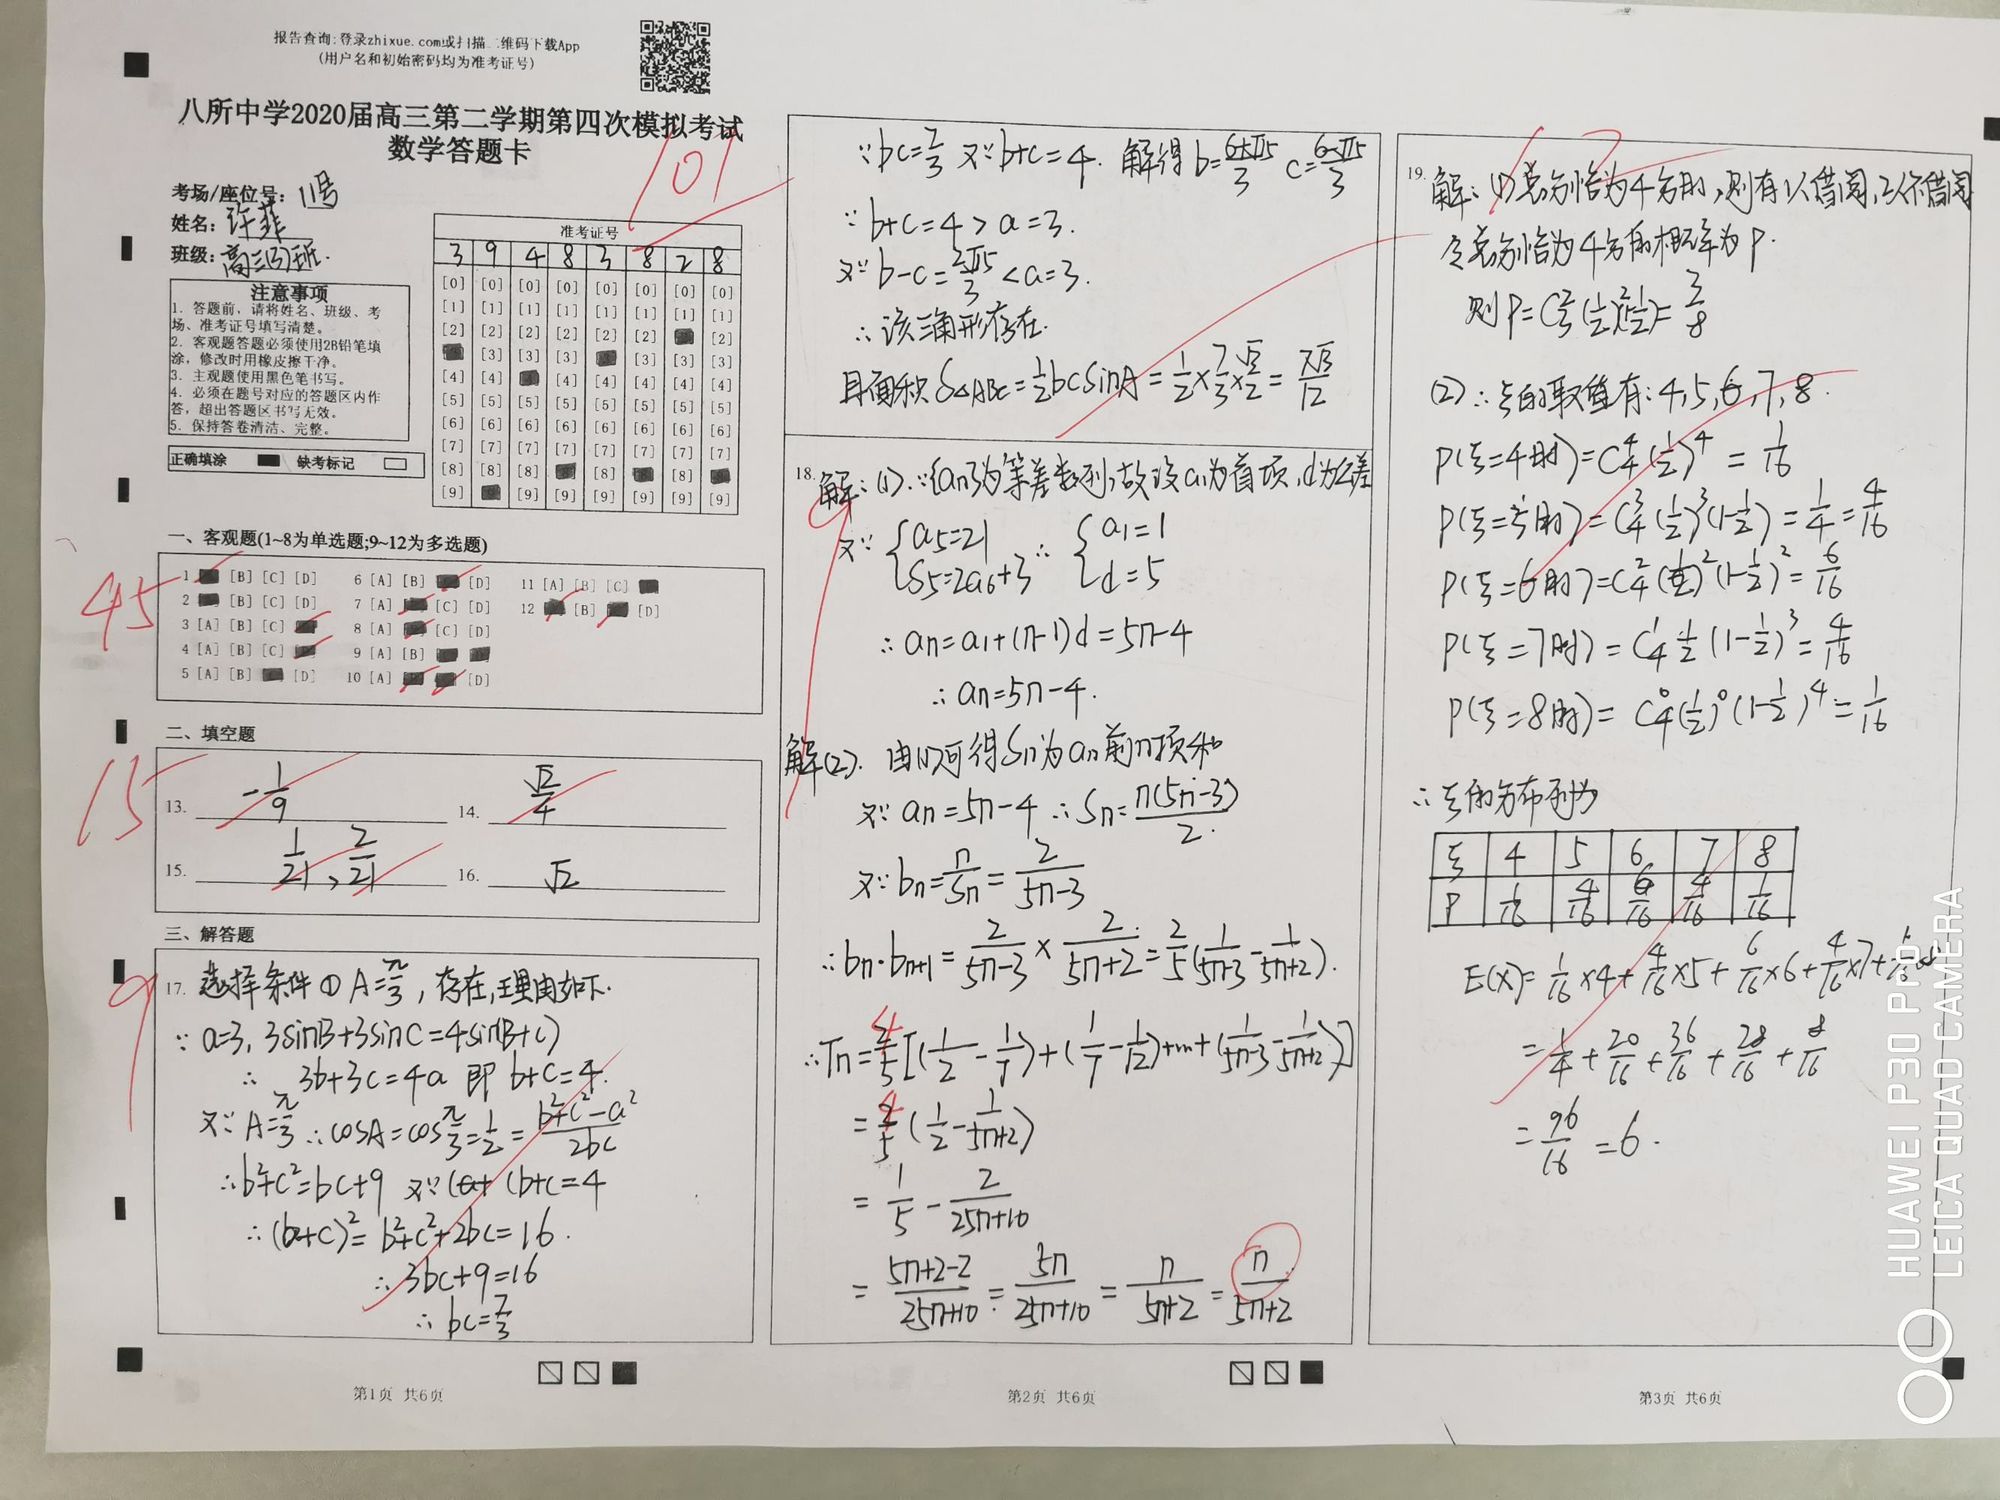 报告查询:登录zhixue.com或扫描二维码下载App
(用户名和初始密码均为准考证号)
八所中学2020届高三第二学期第四次模拟考试
数学答题卡
101
考场/座位号: 11号
姓名: 许菲
班级: 高三(3)班.
准考证号
3 9 4 8 3 8 2 8
[0] [0] [0] [0] [0] [0] [0] [0]
[1] [1] [1] [1] [1] [1] [1] [1]
[2] [2] [2] [2] [2] [2] [2]
[3] [3] [3] [3] [3] [3]
[4] [4] [4] [4] [4] [4] [4]
[5] [5] [5] [5] [5] [5] [5] [5]
[6] [6] [6] [6] [6] [6] [6] [6]
[7] [7] [7] [7] [7] [7] [7] [7]
[8] [8] [8] [8] [8]
[9] [9] [9] [9] [9] [9] [9]
注意事项
1. 答题前，请将姓名、班级、考
场、准考证号填写清楚。
2. 客观题答题必须使用2B铅笔填
涂，修改时用橡皮擦干净。
3. 主观题使用黑色笔书写。
4. 必须在题号对应的答题区内作
答，超出答题区书写无效。
5. 保持答卷清洁、完整。
正确填涂 缺考标记
一、客观题(1~8为单选题;9~12为多选题)
45
1 [B] [C] [D] 6 [A] [B] [D] 11 [A] [B] [C]
2 [B] [C] [D] 7 [A] [C] [D] 12 [B] [D]
3 [A] [B] [C] 8 [A] [C] [D]
4 [A] [B] [C] 9 [A] [B]
5 [A] [B] [D] 10 [A] [D]
二、填空题
15
13. -1/9 14. √2/4
15. 1/21, 2/21 16. √2
三、解答题
9
17. 选择条件① A=π/3, 存在,理由如下.
∵ a=3, 3sinB+3sinC=4sin(B+C)
∴ 3b+3c=4a 即 b+c=4.
又∵ A=π/3 ∴cosA=cosπ/3=1/2=(b²+c²-a²)/2bc
∴b²+c²=bc+9 又∵ (b+c=4
∴(b+c)²=b²+c²+2bc=16.
∴ 3bc+9=16
∴ bc=7/3
第1页 共6页
∵bc=7/3 又∵b+c=4. 解得 b=(6+√15)/3 c=(6-√15)/3
∵b+c=4>a=3.
又∵b-c=2√15/3<a=3.
∴该三角形存在.
且面积S△ABC=1/2bcsinA=1/2×7/3×√3/2=7√3/12
18. 解:(1).∵{an}为等差数列,故设a1为首项,d为公差
又∵ {a5=21 ∴ {a1=1
S5=2a6+3 d=5
∴an=a1+(n-1)d=5n-4
∴an=5n-4.
解(2). 由(1)可得Sn为an前n项和
又∵an=5n-4 ∴Sn=n(5n-3)/2.
又∵bn=n/Sn=2/(5n-3)
∴bn·bn+1=2/(5n-3)×2/(5n+2)=2/5(1/(5n-3)-1/(5n+2)).
∴Tn=4/5[(1/2-1/7)+(1/7-1/12)+…+(1/(5n-3)-1/(5n+2))]
=4/5(1/2-1/(5n+2))
=1/5-2/(25n+10)
=(5n+2-2)/(25n+10)=5n/(25n+10)=n/(5n+2)=n/(5n+2)
第2页 共6页
19. 解:(1)总分恰为4分时,则有1人借阅,2人不借阅
令总分恰为4分的概率为P.
则P=C²₃(1/2)²(1/2)¹=3/8
(2)∴ξ的取值有:4,5,6,7,8.
P(ξ=4时)=C⁴₄(1/2)⁴=1/16
P(ξ=5时)=C³₄(1/2)³(1-1/2)=1/4=4/16
P(ξ=6时)=C²₄(1/2)²(1-1/2)²=6/16
P(ξ=7时)=C¹₄1/2(1-1/2)³=4/16
P(ξ=8时)=C⁰₄(1/2)⁰(1-1/2)⁴=1/16
∴ξ的分布列为
ξ 4 5 6 7 8
P 1/16 4/16 6/16 4/16 1/16
E(X)=1/16×4+4/16×5+6/16×6+4/16×7+1/16×8
=1/4+20/16+36/16+28/16+8/16
=96/16=6.
第3页 共6页
HUAWEI P30 PRO
LEICA QUAD CAMERA